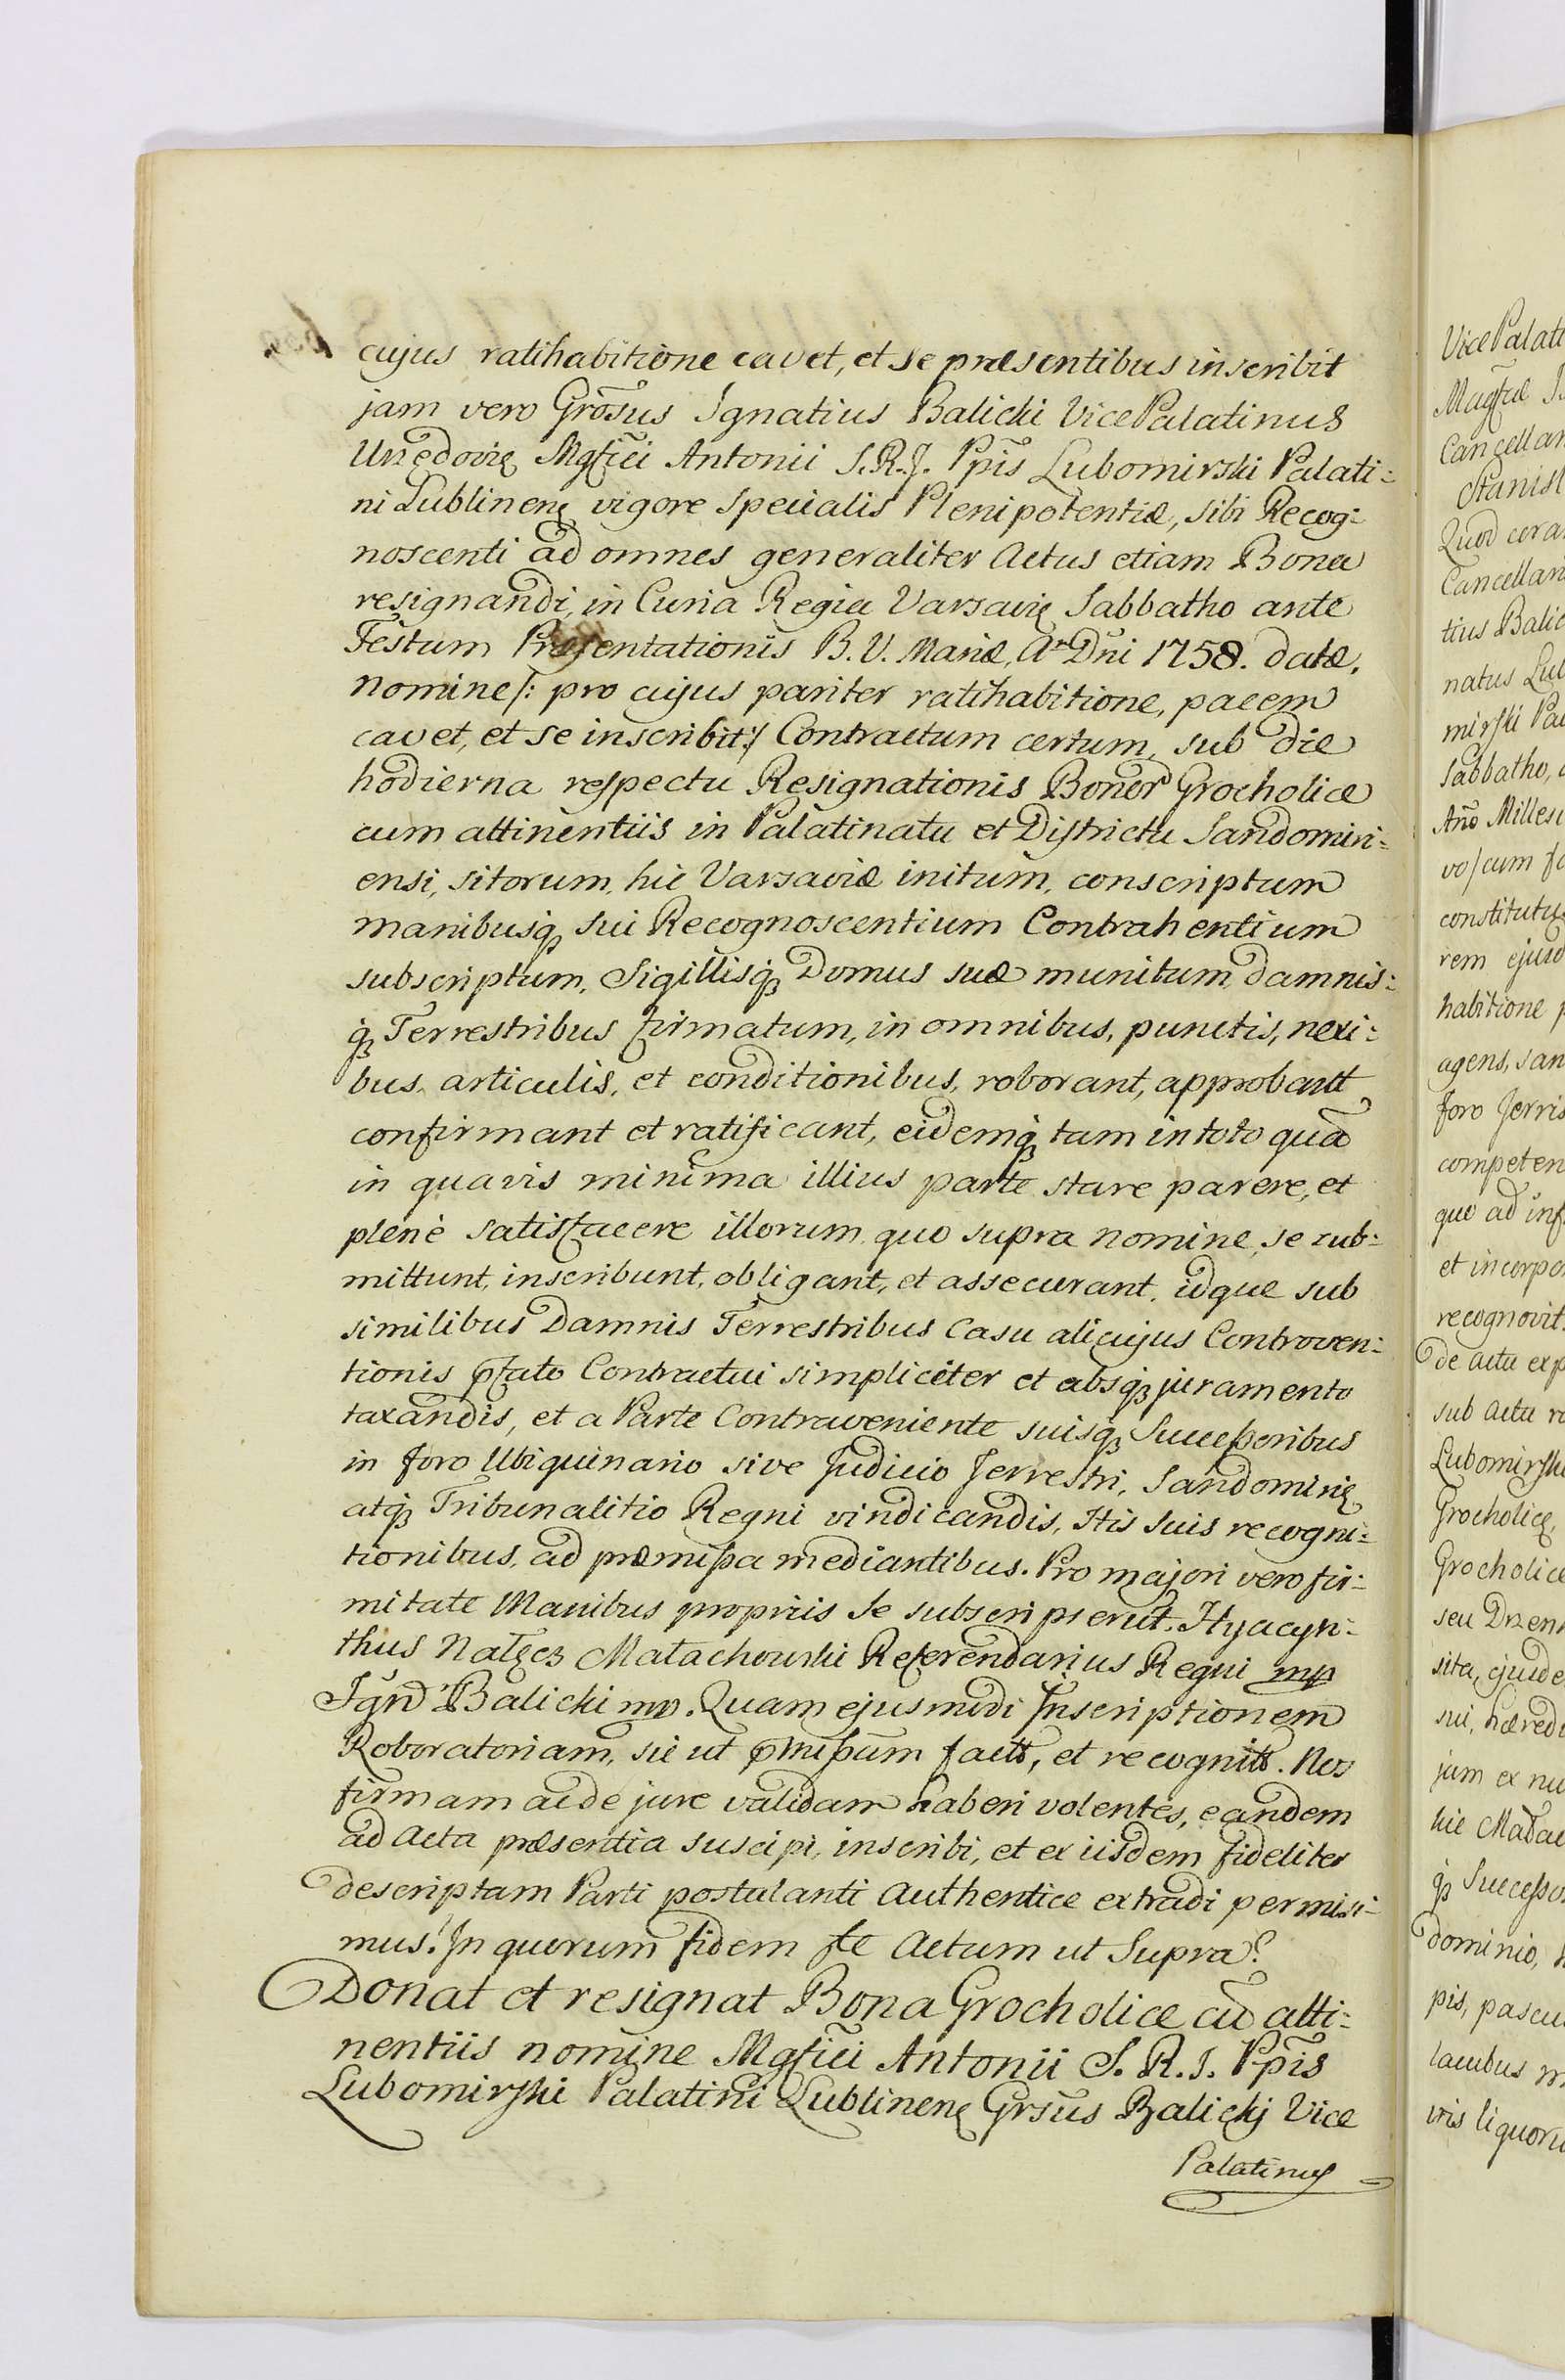 cujus ratihabitione cavet, et se præsentibus inscribit
jam vero Grosus Ignatius Balicki VicePalatinus
Urzędovię Mgfici Antonii S.R.J. Ppis Lubomirski Palati:
ni Lublinenę vigore specialis Plenipotentiæ, sibi Recog:
noscenti ad omnes generaliter Actus etiam Bona
resignandi, in Curia Regia Varsavię Sabbatho ante
Festum Præsentationis B. V. Mariæ, Ao Dni 1758. datæ,
nomine /: pro cujus pariter ratihabitione, pacem
cavet, et se inscribit :/ Contractum certum, sub die
hodierna respectu Resignationis Bonor Grocholice
cum attinentiis in Palatinatu et Districtu Sandomiri:
ensi, sitorum, hic Varsaviæ initum, conscriptum
manibusq; sui Recognoscentium Contrahentium
subscriptum, Sigillisq; Domus suæ munitum, damnis:
q; Terrestribus firmatum, in omnibus, punctis, nexi:
bus, articulis, et conditionibus, roborant, approbant
confirmant et ratificant, eidemq; tam in toto quā
in quavis minima illius parte stare parere, et
plenè satisfacere illorum quo supra nomine, se sub:
mittunt, inscribunt, obligant, et assecurant, idque sub
similibus Damnis Terrestribus Casu alicujus Controven:
tionis pfato Contractui simpliciter et absq; juramento
taxandis, et a Parte Contraveniente suisq; Successoribus
in foro Ubiquinario sive Judicio Terrestri, Sandomirię
atq; Tribunalitio Regni vindicandis, Itis suis recogni:
tionibus, ad præmissa mediantibus. Pro majori vero fir:
mitate Manibus propriis se subscripserūt. Hyacyn:
thus Nałęcz Małachowski Referendarius Regni mp
Ignā Balicki mp. Quam ejusmodi Inscriptionem
Roboratoriam, sic ut pmissum factt, et recognitt. Nos
firmam ac de jure validam haberi volentes, eandem
ad Acta præsentia suscipi, inscribi, et ex iisdem fideliter
descriptam Parti postulanti Authentice extradi permisi:
mus. In quorum fidem fte Actum ut Supra.
Donat et resignat Bona Grocholice cū atti:
nentiis nomine Mgfici Antonii S. R. I. Ppis
Lubomirski Palatini Lublinenę Grsus Balickj Vice
Palatinus
VicePalati
Cancellar
Stanisl
Quod cora
Cancellar
tius Balic
natus Lub
mirski Pa
Sabbatho,
Ano Milles
constitutu
rem ejusd
habitione
agens, san
foro Terris
competen
quo ad inf
et incorpo
recognovit.
de actu exp
sub actu
Lubomirski
Grocholicę,
Grocholice
seu
sita, ejusde
sui, hæredi
jam ex nu
q; Successo
dominio,
pis, pascu
lacubus